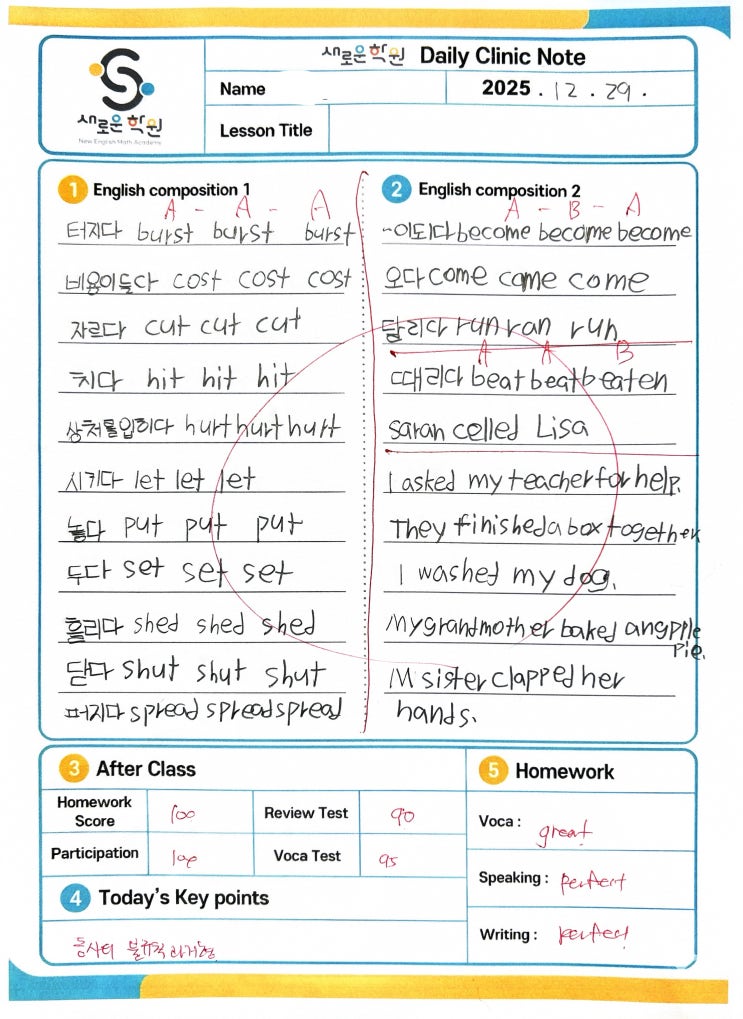 새로운학원
New English Math Academy
새로운학원 Daily Clinic Note
Name
2025 . 12 . 29 .
Lesson Title
1 English composition 1
A - A - A
터지다 burst burst burst
비용이들다 cost cost cost
자르다 cut cut cut
치다 hit hit hit
상처를입히다 hurt hurt hurt
시키다 let let let
놓다 put put put
두다 set set set
흘리다 shed shed shed
닫다 shut shut shut
퍼지다 spread spread spread
2 English composition 2
A - B - A
~이되다 become become become
오다 come came come
달리다 run ran run
A A B
때리다 beat beat beaten
saran celled Lisa
I asked my teacher for help.
They finished a box together
I washed my dog.
My grandmother baked an
pie.
M sister clapped her
hands.
3 After Class
Homework Score 100 Review Test 90
Participation 100 Voca Test 95
4 Today's Key points
동사의 불규칙 과거형
5 Homework
Voca : great
Speaking : perfect
Writing : perfect